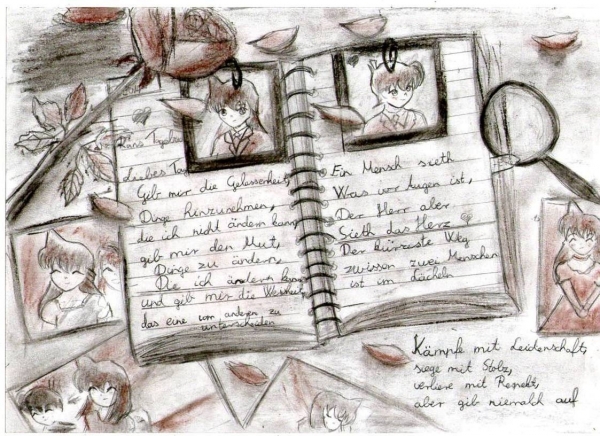 Rans Tagebuch
Liebes Tag
Gib mir die Gelassenheit,
Dinge hinzunehmen,
die ich nicht ändern kann,
gib mir den Mut,
Dinge zu ändern,
Die ich ändern kann
und gib mir die Weisheit,
das eine vom anderen zu
unterscheiden
Ein Mensch sieth
Was vor Augen ist,
Der Herr aber
Sieth das Herz
Der kürzeste Weg
zwisson zwei Menschen
ist im Lächeln
Kämpfe mit Leidenschaft,
siege mit Stolz,
verliere mit Respekt,
aber gib niemals auf